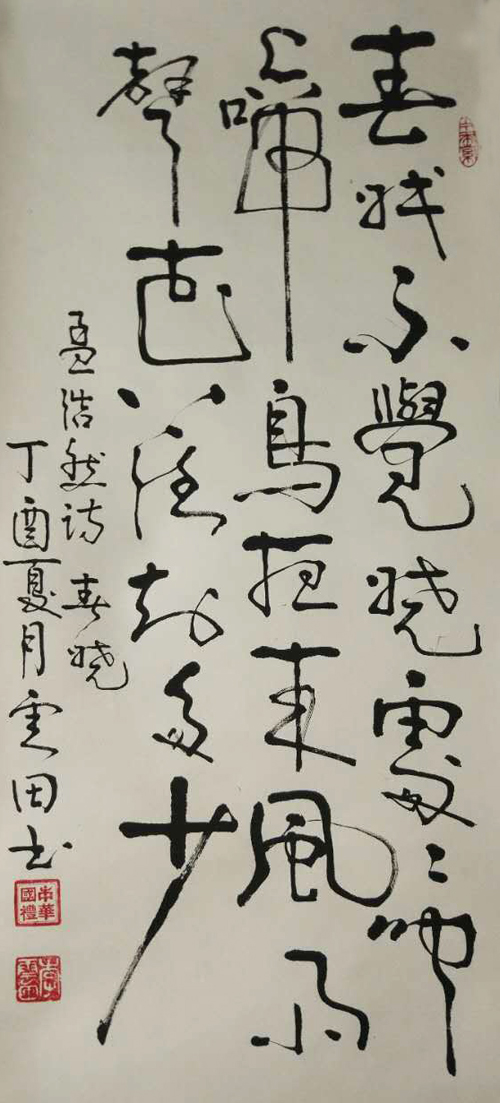 春眠不覺曉處〻聞
啼鳥夜来風雨
聲花落知多少
孟浩然诗 春曉
丁酉夏月雲田书
中華國禮